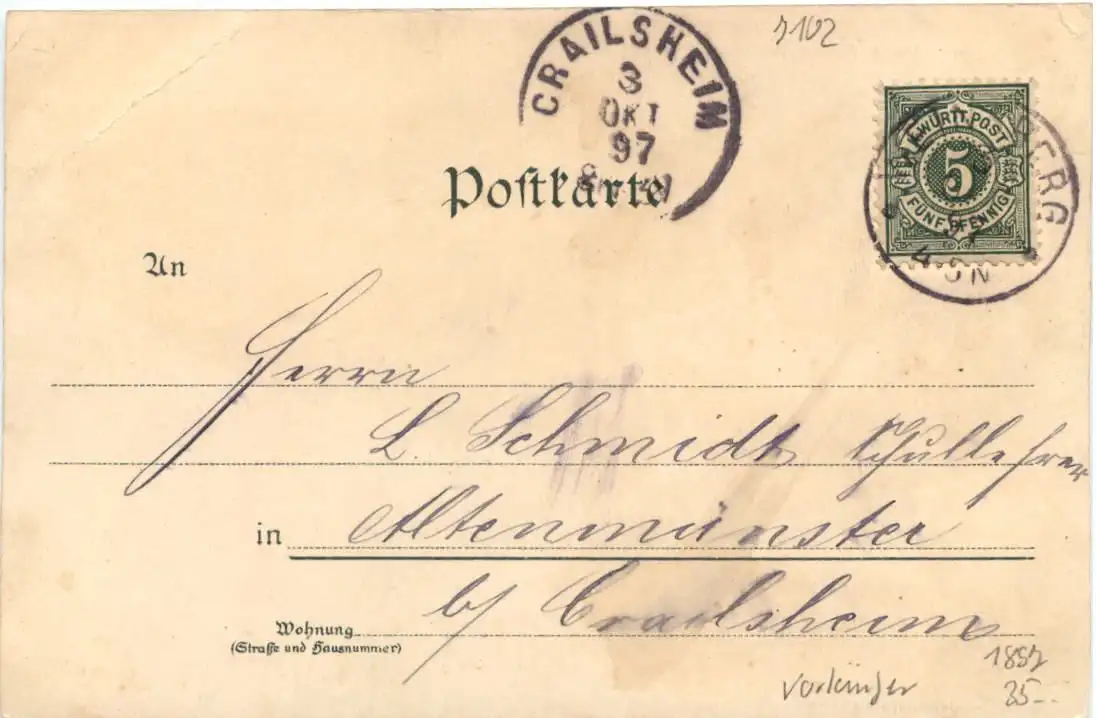 5102
CRAILSHEIM
3
OKT
97
K. WÜRTT. POST
5
FÜNF PFENNIG
BERG
4-5 N
Postkarte
An
Herrn
L. Schmidt, Schullehrer
in Altenmünster
b/ Crailsheim
Wohnung
(Straße und Hausnummer)
1897
Vorläufer
35.-